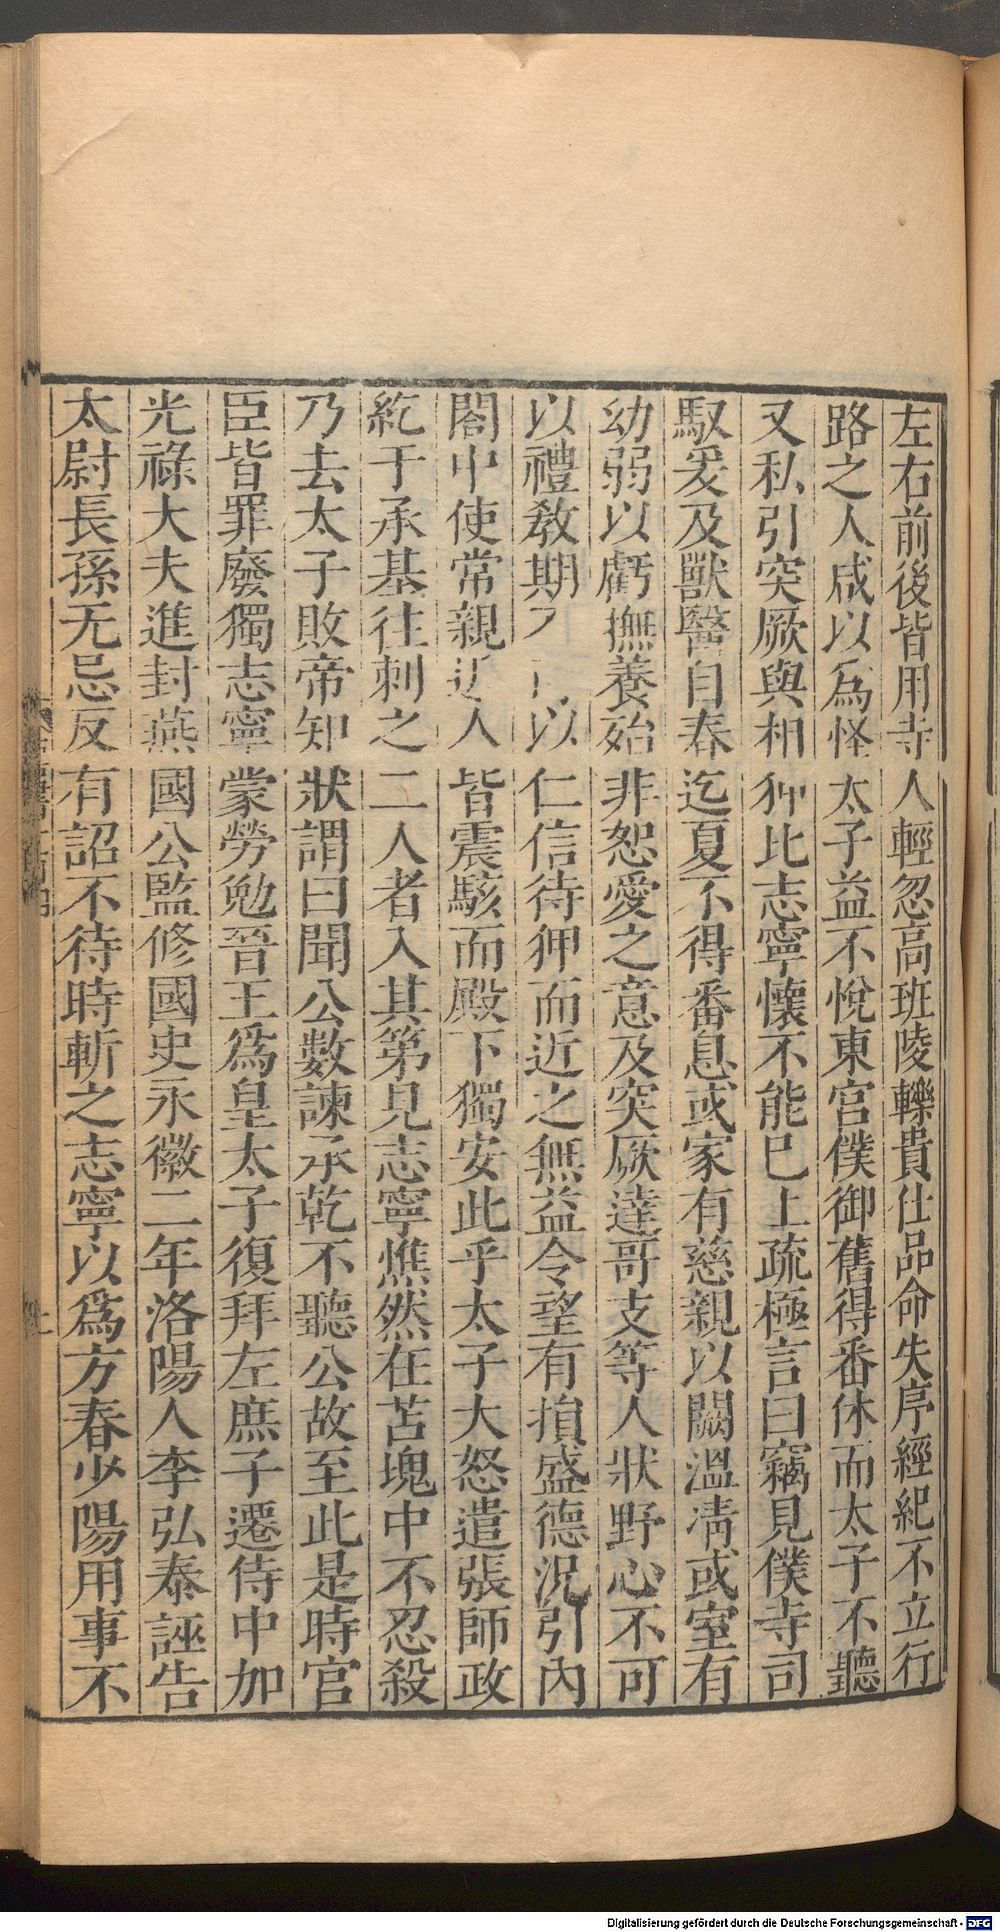 左右前後皆用寺人輕忽高班陵轢貴仕品命失序經紀不立行
路之人咸以爲怪太子益不悅東宮僕御舊得番休而太子不聽
又私引突厥與相狎比志寧懷不能已上疏極言曰竊見僕寺司
馭爰及獸醫自春迄夏不得番息或家有慈親以闕溫凊或室有
幼弱以虧撫養殆非恕愛之意及突厥達哥支等人狀野心不可
以禮敎期以仁信待狎而近之無益令望有損盛德況引內
閤中使常親近人皆震駭而殿下獨安此乎太子大怒遣張師政
紇于承基往刺之二人者入其第見志寧憔然在苫塊中不忍殺
乃去太子敗帝知狀謂曰聞公數諫承乾不聽公故至此是時宮
臣皆罪廢獨志寧蒙勞勉晉王爲皇太子復拜左庶子遷侍中加
光祿大夫進封燕國公監修國史永徽二年洛陽人李弘泰誣告
太尉長孫无忌反有詔不待時斬之志寧以爲方春少陽用事不
Digitalisierung gefördert durch die Deutsche Forschungsgemeinschaft - DFG